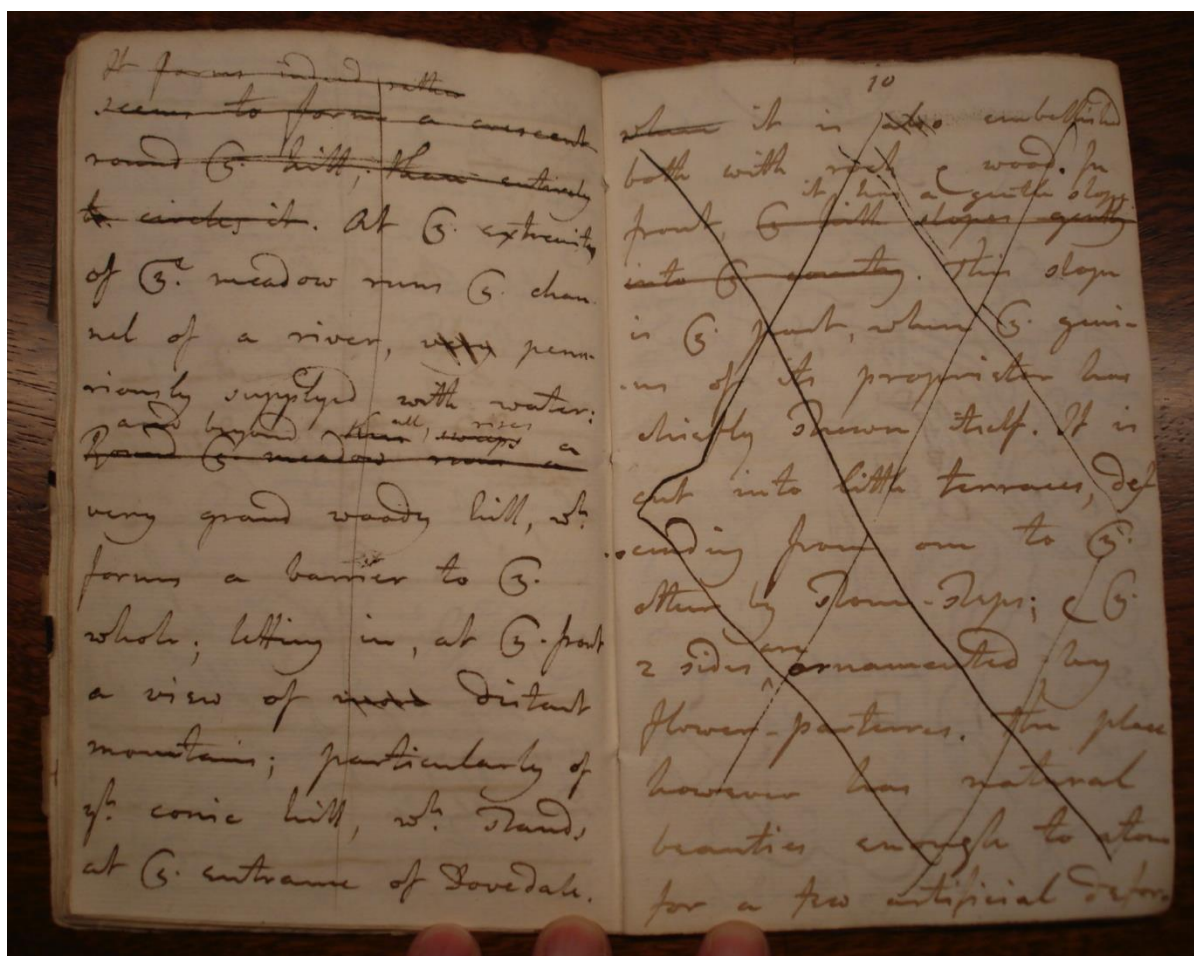 It forms indeed rather
seems to form a crescent
round the hill, than entirely
to circles it. At the extremity
of the meadow runs the chan-
nel of a river, very penu-
riously supplyed with water:
and beyond them all, sweeps rises a
Round the meadow runs a
very grand woody hill, wh.
forms a barrier to the
whole; letting in, at the front
a view of more distant
mountains; particularly of
yt. conic hill, wh. stands
at the entrance of Dovedale.
10
when it is also embellished
both with rock & wood. In
it has a gentle slope
front, the hill slopes gently
into the country. This slope
is the part, where the geni-
us of its proprietor has
chiefly shewn itself. It is
cut into little terraces, des
cending from one to the
other by stone-steps; & the
2 sides are ornamented by
flower-parterres. The place
however has natural
beauties enough to atone
for a few artificial defor-